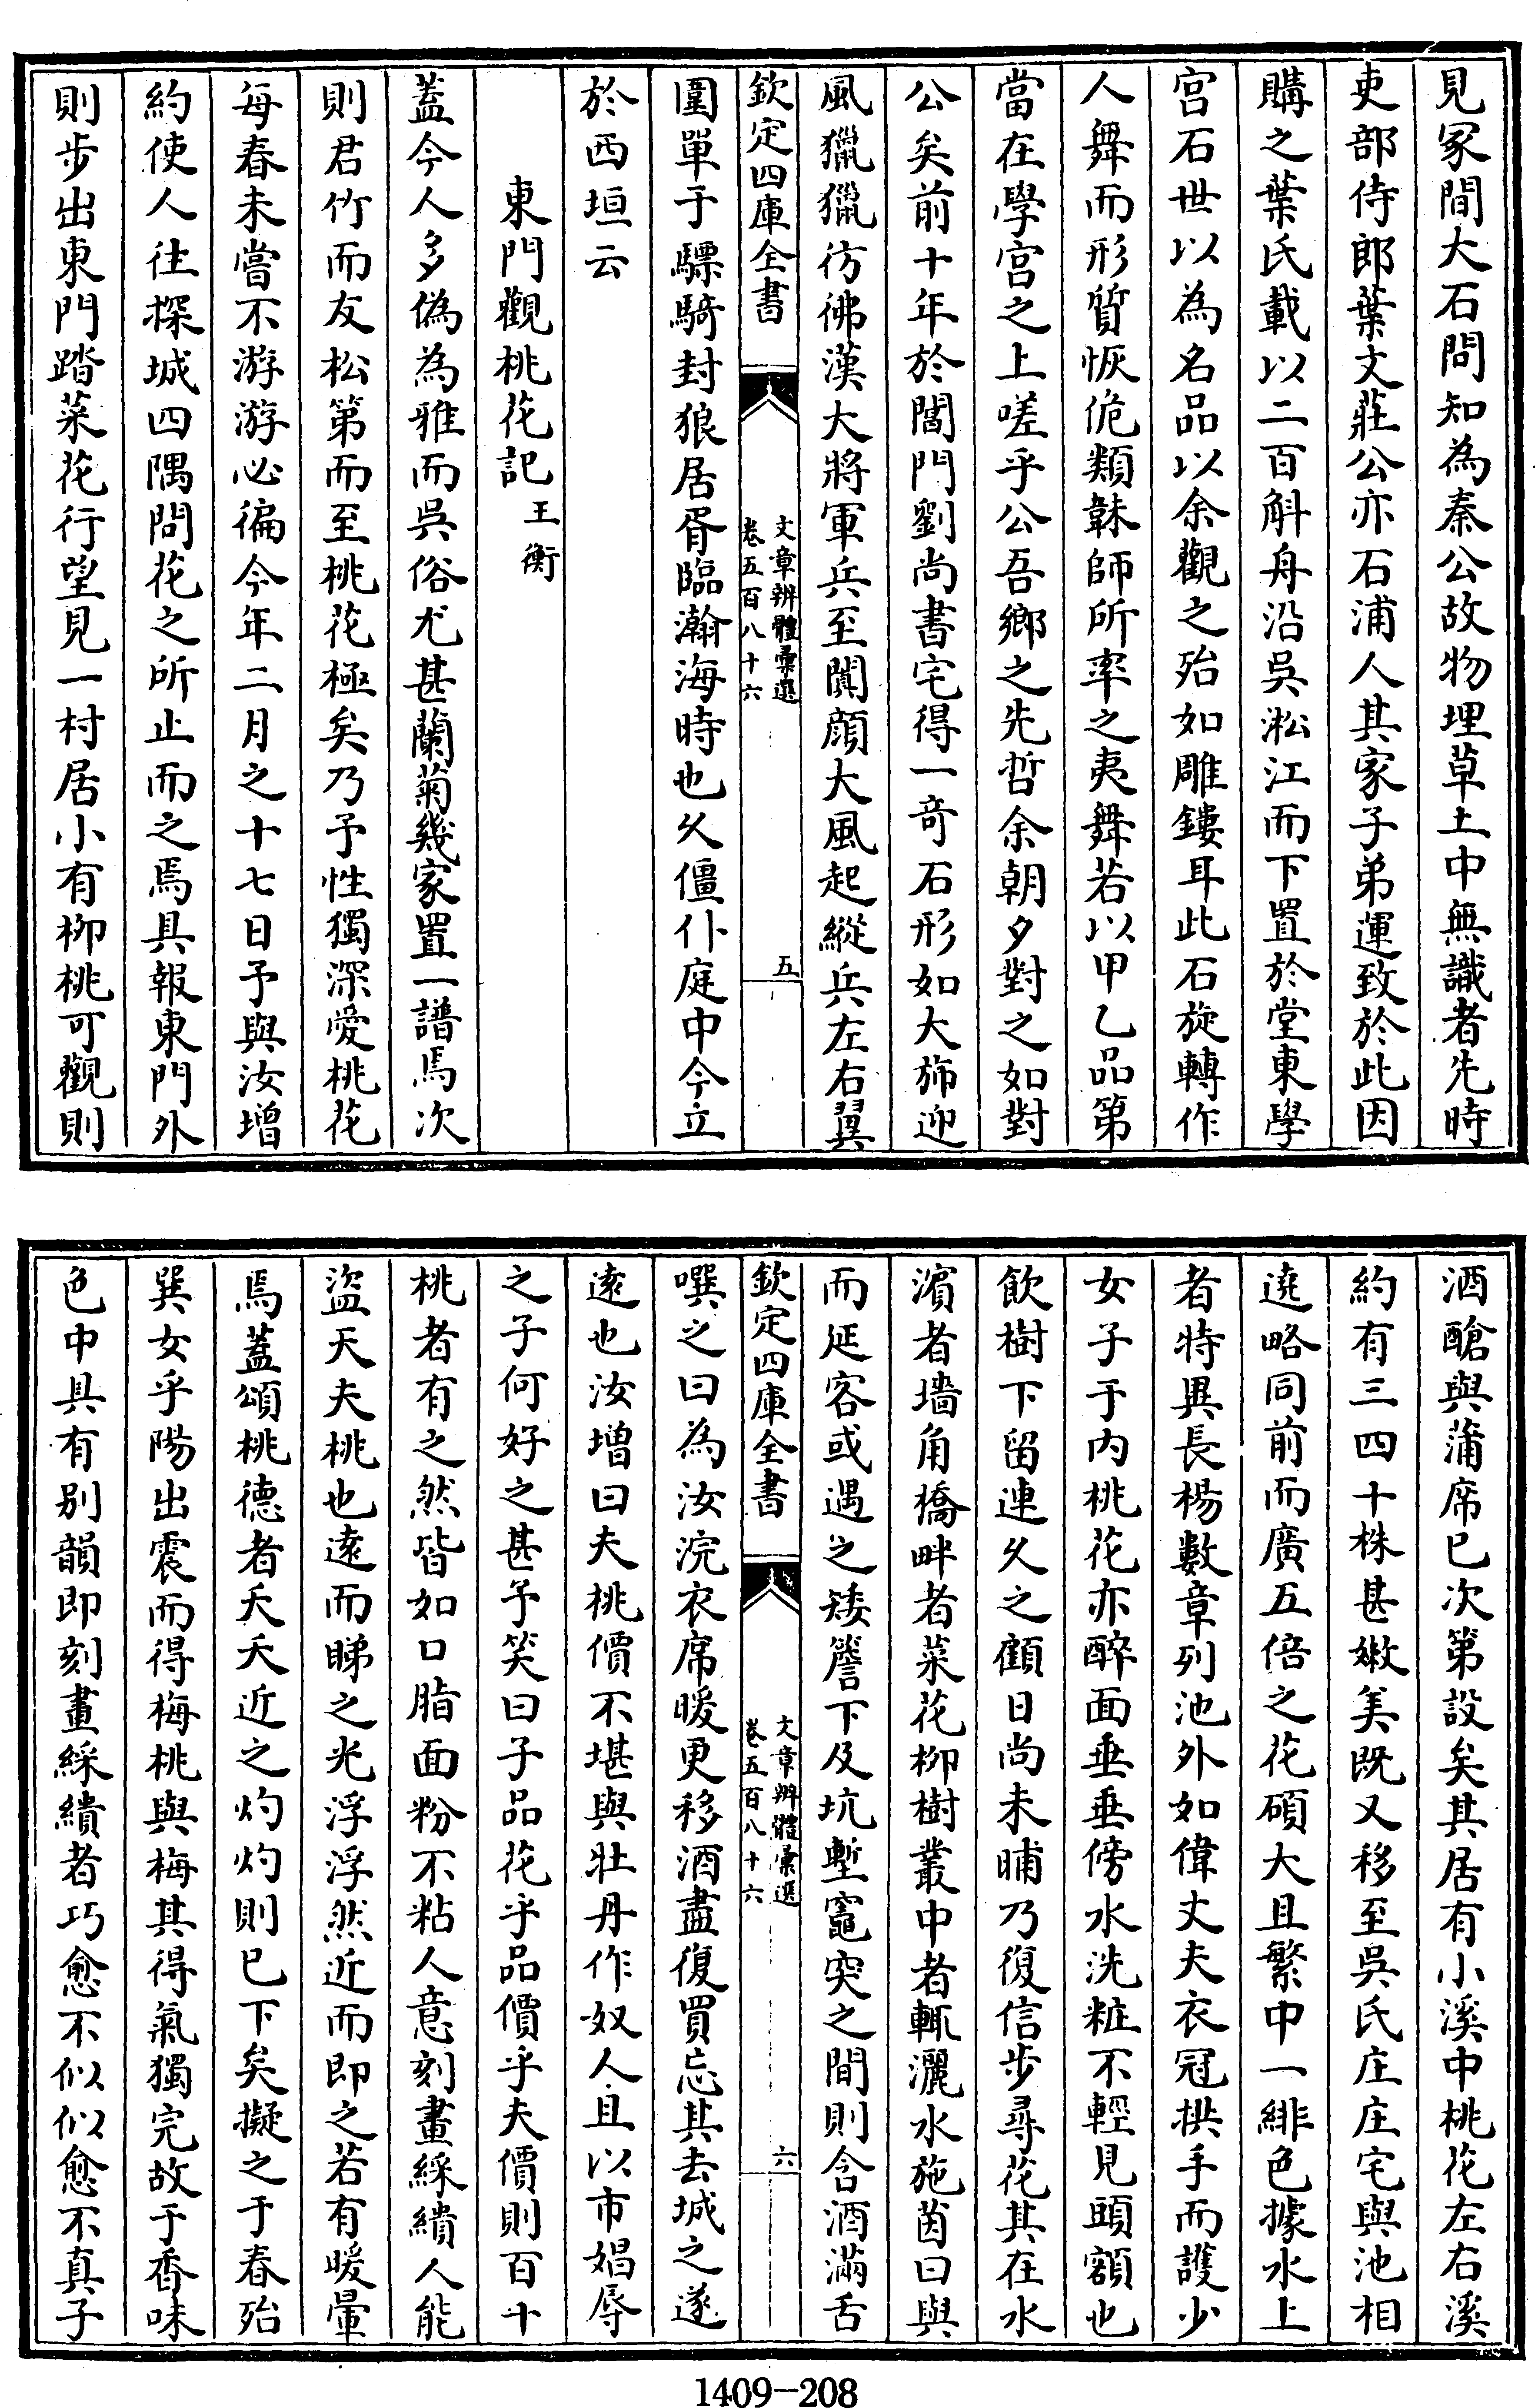 見冢間大石問知為秦公故物埋草土中無識者先時
吏部侍郎葉文莊公亦石浦人其家子弟運致於此因
購之葉氏載以二百斛舟沿吳淞江而下置於堂東學
宫石世以為名品以余觀之殆如雕鏤耳此石旋轉作
人舞而形質恢佹類韎師所率之夷舞若以甲乙品第
當在學宫之上嗟乎公吾鄉之先哲余朝夕對之如對
公矣前十年於閶門劉尚書宅得一竒石形如大斾迎
風獵獵彷彿漢大將軍兵至闐顔大風起縱兵左右翼
欽定四庫全書
文章辨體彚選
卷五百八十六
五
圍單于驃騎封狼居胥臨瀚海時也乆僵仆庭中今立
於西垣云
東門觀桃花記 王衡
蓋今人多偽為雅而吳俗尤甚蘭菊幾家置一譜焉次
則君竹而友松第而至桃花極矣乃予性獨深愛桃花
每春未嘗不游游必徧今年二月之十七日予與汝增
約使人徃探城四隅問花之所止而之焉具報東門外
則步出東門踏菜花行望見一村居小有柳桃可觀則
酒艙與蒲席已次第設矣其居有小溪中桃花左右溪
約有三四十株甚嫩美既又移至吳氏庄庄宅與池相
遶略同前而廣五倍之花碩大且繁中一緋色據水上
者特異長楊數章列池外如偉丈夫衣冠拱手而護少
女子于内桃花亦醉面垂垂傍水洗粧不輕見頭額也
飲樹下留連乆之顧日尚未晡乃復信步尋花其在水
濵者墻角橋畔者菜花柳樹叢中者輒灑水施茵曰與
而延客或遇之矮簷下及坑塹竈突之間則含酒滿舌
欽定四庫全書
文章辨體彚選
卷五百八十六
六
噀之曰為汝浣衣席暖更移酒盡復買忘其去城之遂
逺也汝增曰夫桃價不堪與牡丹作奴人且以市娼辱
之子何好之甚予笑曰子品花乎品價乎夫價則百十
桃者有之然皆如口脂面粉不粘人意刻畫綵繢人能
盜天夫桃也逺而睇之光浮浮然近而即之若有暖暈
焉蓋頌桃德者夭夭近之灼灼則已下矣擬之于春殆
巽女乎陽出震而得梅桃與梅其得氣獨完故于香味
色中具有别韻即刻畫綵繢者巧愈不似似愈不真子
1409-208